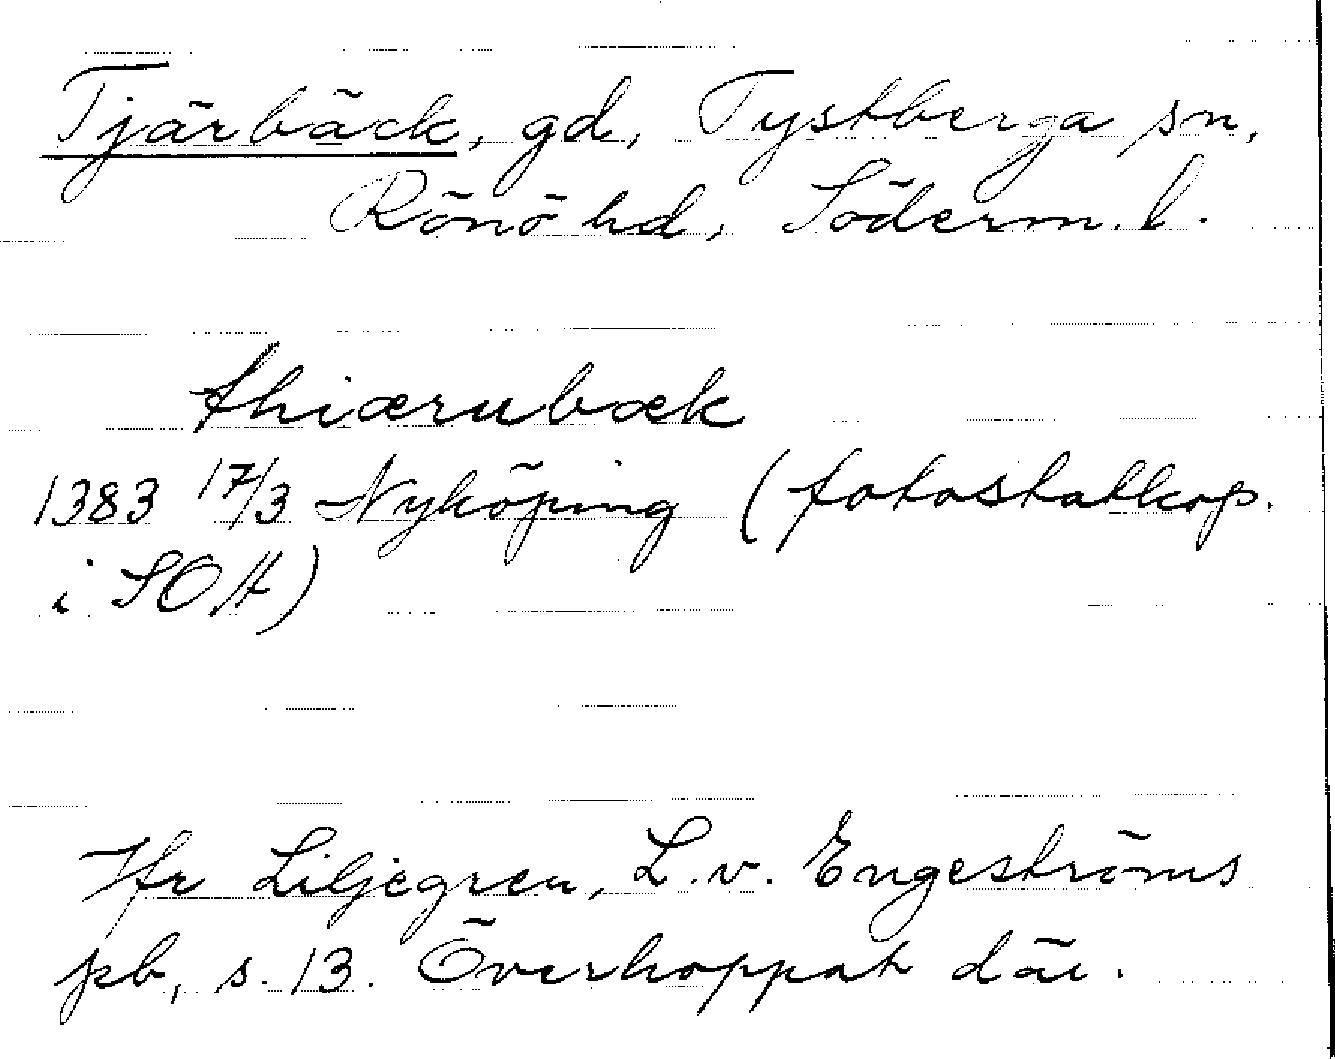 Tjärbäck, gd, Tystberga sn,
Rönö hd, Söderm. l.
thiærubæk
1383 17/3 Nyköping (fotostatkop.
i SOA)
Jfr Liljegren, L. v. Engeströms
pb, s. 13. Överhoppat där.